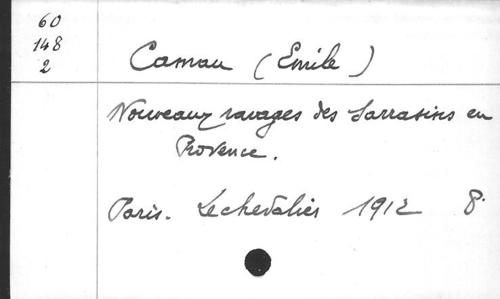 60
148
2
Camau (Emile)
Nouveaux ravages des Sarrasins en
Provence.
Paris. Lechevalier 1912 8°